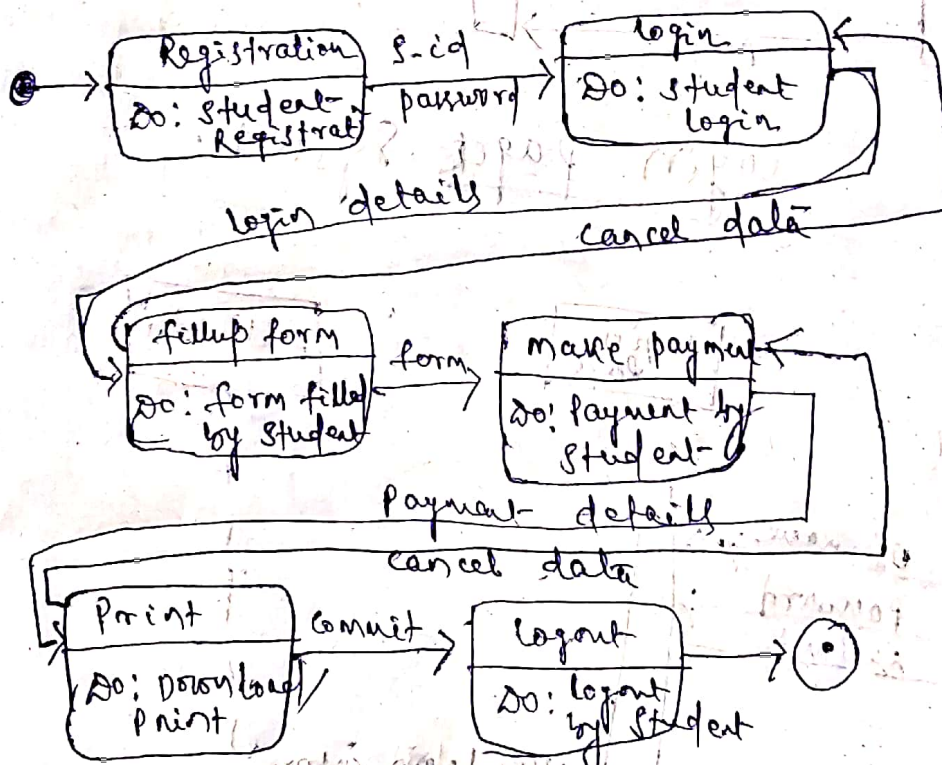 Registration
Do: Student
Registrat
S-id
password
login
Do: Student
login
login details
cancel data
fillup form
Do: form filled
by Student
form
make payment
Do: Payment by
Student
Payment details
cancel data
Print
Do: Download
Print
Commit
logout
Do: logout
by Student